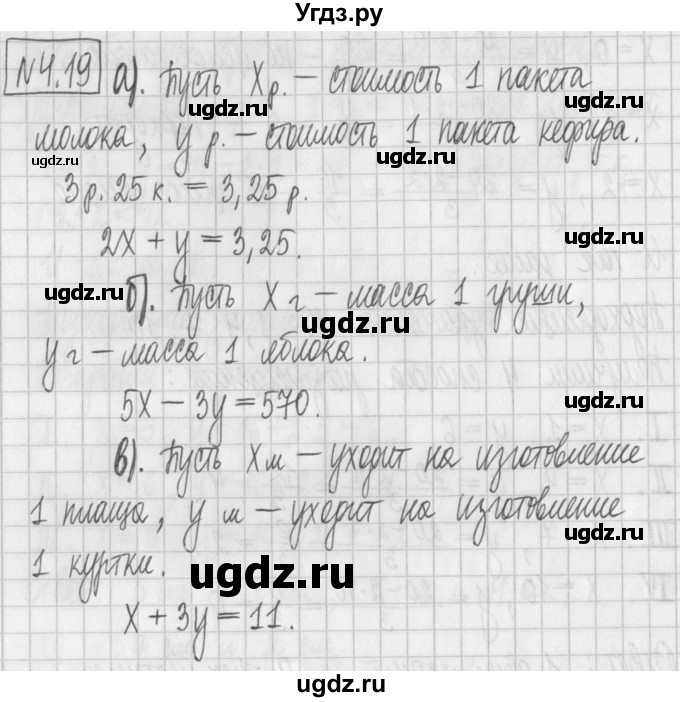 Угдз.ру
№4.19 а). Пусть x р. – стоимость 1 пакета
ugdz.ru ugdz.ru
молока, y р. – стоимость 1 пакета кефира.
ugdz.ru ugdz.ru
3 р. 25 к. = 3,25 р.
2x + y = 3,25.
ugdz.ru
ugdz.ru
б). Пусть x г – масса 1 груши,
ugdz.ru
y г – масса 1 яблока.
5x – 3y = 570.
ugdz.ru
ugdz.ru
в). Пусть x м – уходит на изготовление
1 плаща, y м – уходит на изготовление
ugdz.ru ugdz.ru
1 куртки.
ugdz.ru
x + 3y = 11.
ugdz.ru
ugdz.ru
ugdz.ru